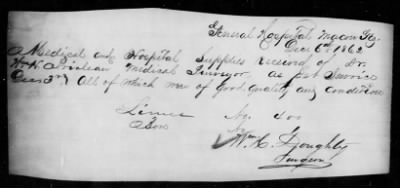 General Hospital Macon Ga.
Dec 6th 1862
Medical and Hospital Supplies Received of Dr
W. H. Prioleau Medical Purveyor as per Invoice
Dec 3rd All of which were of good quality and condition
No 400
Wm. C.
Surgeon